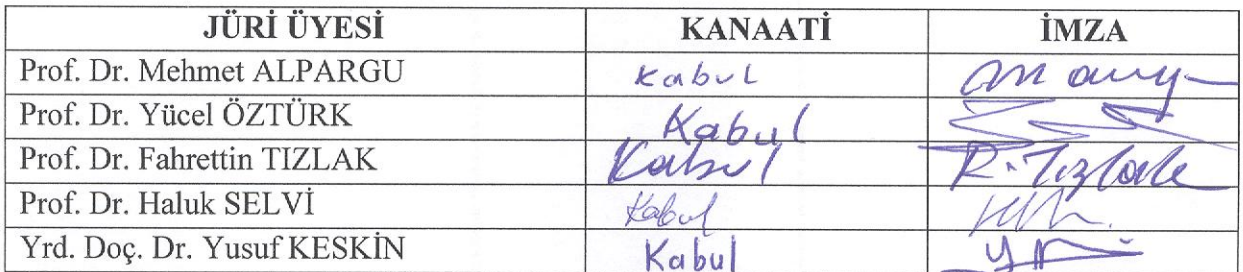 JÜRİ ÜYESİ KANAATİ İMZA
Prof. Dr. Mehmet ALPARGU Kabul
Prof. Dr. Yücel ÖZTÜRK Kabul
Prof. Dr. Fahrettin TIZLAK Kabul R. Tızlak
Prof. Dr. Haluk SELVİ Kabul
Yrd. Doç. Dr. Yusuf KESKİN Kabul